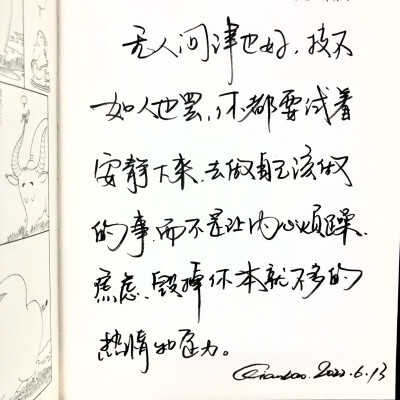 无人问津也好,技不
如人也罢,你都要试着
安静下来,去做自己该做
的事,而不是让内心烦躁、
焦虑、毁掉你本就不多的
热情和定力。
2022.6.13